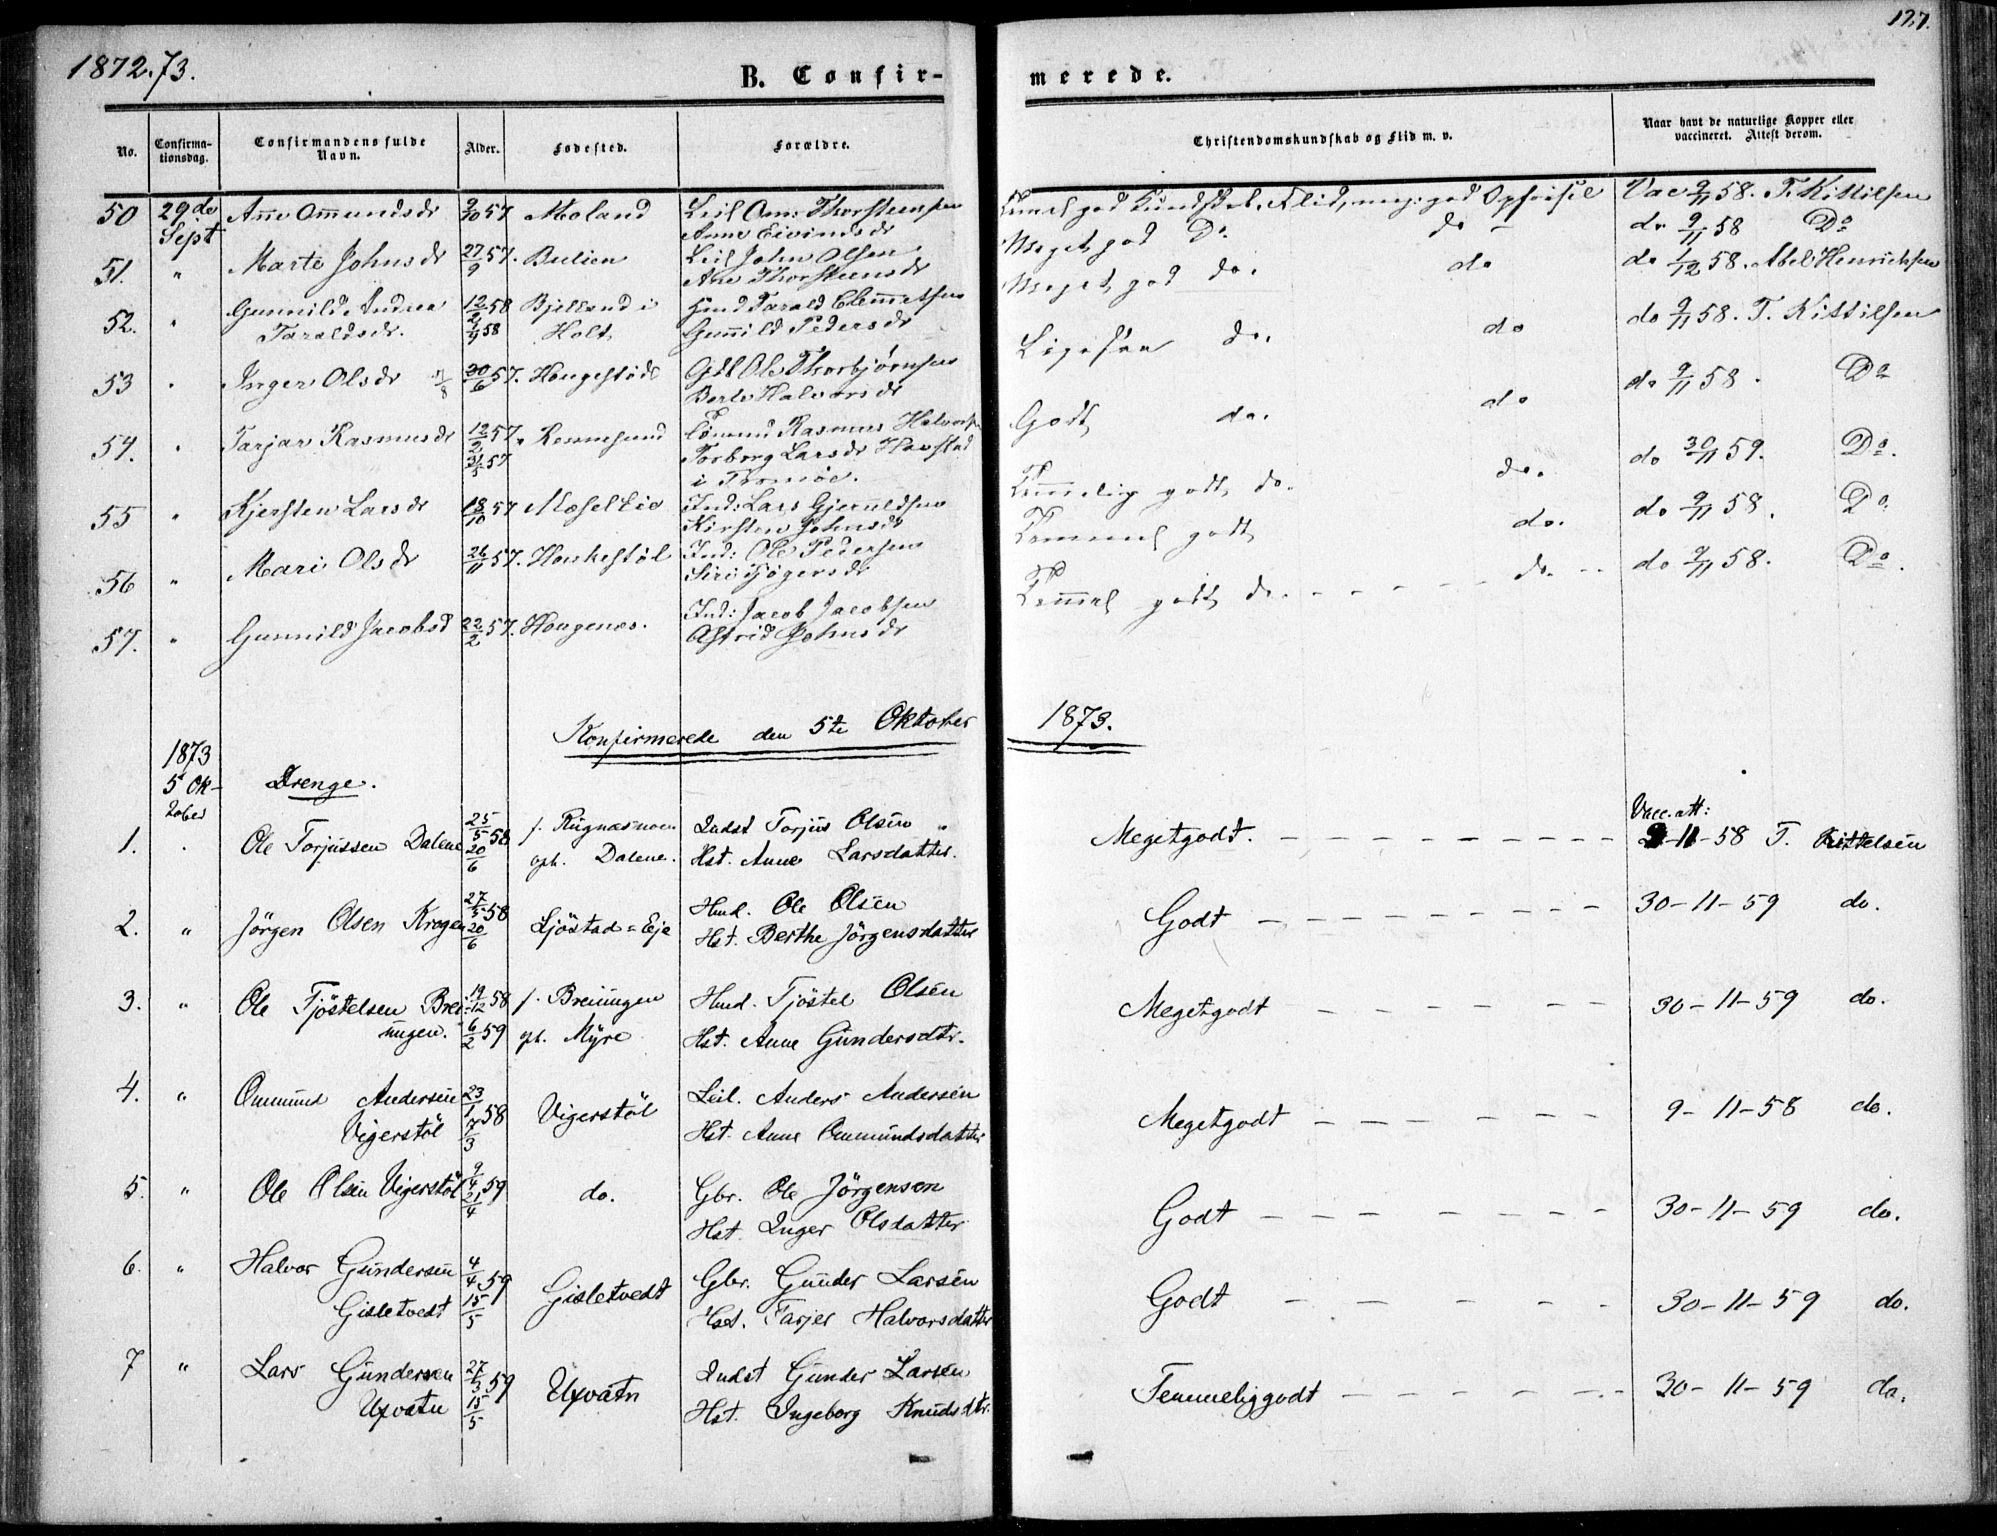 127.
1872.73.
B. Confir-
merede.
No.
Confirma-
tionsdag.
Confirmandens fulde
Navn.
Alder.
Fødested.
Forældre.
Christendomskundskab og Flid m. v.
Naar havt de naturlige Kopper eller
vaccineret. Attest derom.
50 29de Sept Anne Ommundsdr 57 Moland Leil Om: Thorstensen
Anne Eivindsdr
god Kundskab, Flid, meg: god Opførsel Vac 9/11 58. T. Kittilsen
51. " Marte Johnsdr 27/9 57. Bulien Leil John Olsen
Ane Thorstensdr
Meget god Do. do do 9/11 58 Do
52. " Gunnild Andrea 12/2 58 Bjelland i Hmd Tarald Clemetsen
Taraldsdr. 58 Holt Gunnild Pedersdr
Meget god do. do do 1/12 58. Abel Henrichsen
53 " Inger Olsdr 30/6 57. Hougestöl Gbr Ole Thorbjörnsen
Berte Halvorsdr
Ligesaa do. do do 9/11 58. T. Kittilsen
54. " Tarjar Rasmusdr 12/2 57. Rasmus Halvors
31/5 57 Torborg Larsdr
i Tromöe.
Godt do. do do 9/11 58. Do
55 " Kjersten Larsdr 18/10 57 Ind: Lars Gjeruldsen
Kirsten Johnsdr
Temmelig godt do. do. do 30/11 59. Do.
56 " Mari Olsdr 26/11 57. Houkestöl Ind: Ole Pedersen
Siri
Temmel godt do. do 9/11 58. Do.
57. " Gunnild Jacobsd 22/2 57. Hougenes. Ind: Jacob Jacobsen
Astrid Johnsdr
Temmel godt do. - - - - do. - - do 9/11 58. Do.
Konfirmerede den 5te Oktober 1873.
1873
5 Ok-
tober
Drenge.
1. Ole Torjussen Dalene 25/5 58 f. Rugnæsmoen Indst Torjus Olsen
20/6 oph. Dalene. Hst. Anne Larsdatter.
Megetgodt. - - - - - - - - - Vacc. att:
9-11-58 T. Kittelsen
2. " Jörgen Olsen Krogen 27/5 58 Ljöstad-Eje Hmd. Ole Olsen
20/6 Hst. Berthe Jörgensdatter
Godt - - - - - - - - - 30-11-59 do.
3. " Ole Tjöstelsen Brei- 19/12 58 f. Breiungen Hmd. Tjöstel Olsen
ungen. 6/2 59 oph. Myre Hst. Anne Gundersdtr.
Megetgodt - - - - - - 30-11-59 do.
4. " Ommund Andersen 23/1 58 Vigerstöl Leil. Anders Andersen
Vigerstöl 7/3 Hst. Anne Ommundsdatter
Megetgodt - - - - - - 9-11-58 do.
5. " Ole Olsen Vigerstöl 59 do. Gbr. Ole Jörgensen
21/4 Hst. Inger Olsdatter
Godt - - - - - - - - 30-11-59 do.
6. " Halvor Gundersen 4/4 59 Gisletvedt Gbr. Gunder Larsen
Gisletvedt 15/5 Hst. Tarjer Halvorsdatter
Godt - - - - - - 30-11-59 do.
7 " Lars Gundersen 27/3 59 Uxvatn Indst Gunder Larsen
Uxvatn 15/5 Hst. Ingeborg Knudsdtr.
Temmeliggodt - - - - - - - 30-11-59 do.